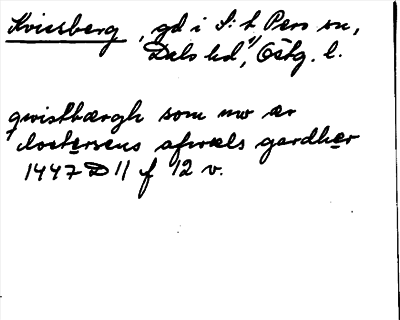 Kvissberg, gd i S:t Pers sn,
Dals hd, Östg. l.
qwistbærgh som nw ær
closterssens afwæls gardher
1447 D 11 f 12 v.